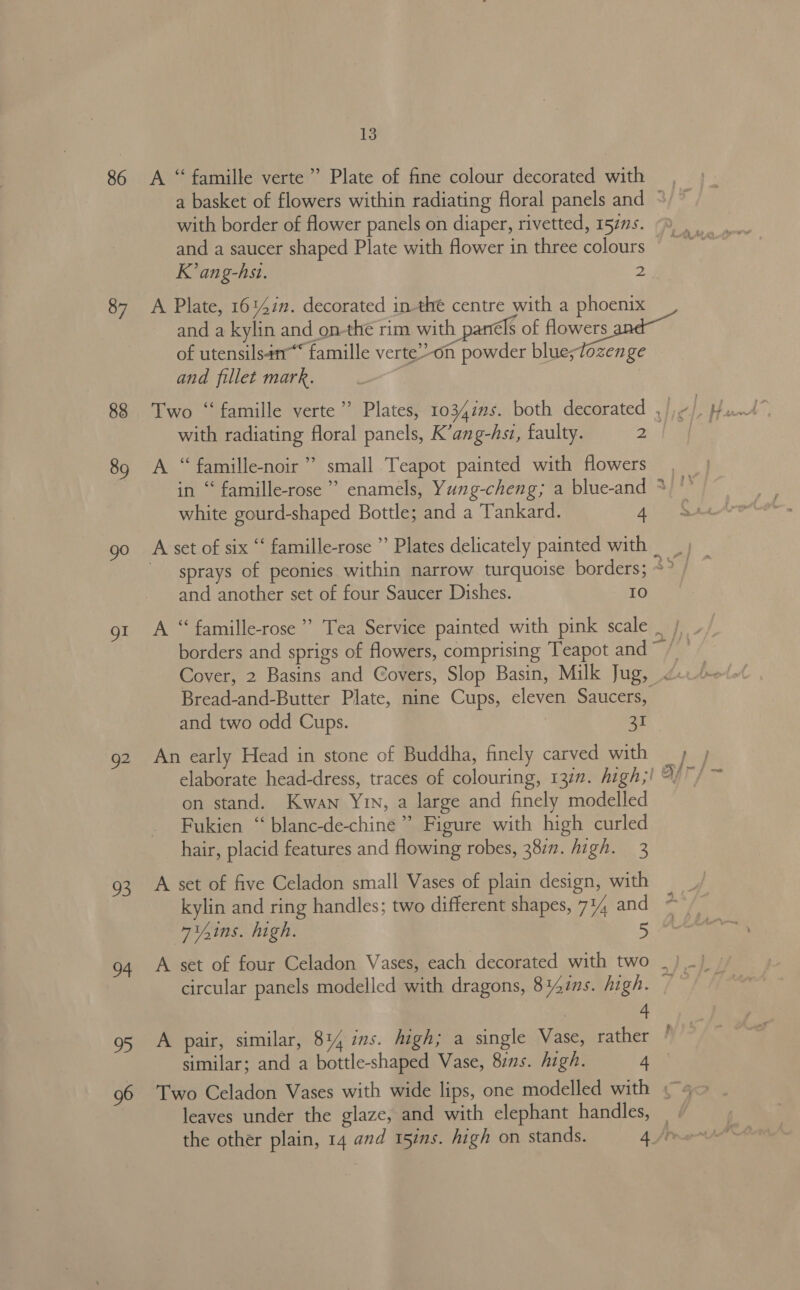 13
86 A “famille verte” Plate of fine colour decorated with
a basket of flowers within radiating floral panels and
with border of flower panels on diaper, rivetted, 15ins.
and a saucer shaped Plate with flower in three colours
K’ang-hsi. 2
87 A Plate, 16½in. decorated in the centre with a phoenix
and a kylin and on the rim with panels of flowers and
of utensils in “famille verte” on powder blue; lozenge
and fillet mark.
88 Two “famille verte” Plates, 10¾ins. both decorated
with radiating floral panels, K’ang-hsi, faulty. 2
89 A “famille-noir” small Teapot painted with flowers
in “famille-rose” enamels, Yung-cheng; a blue-and
white gourd-shaped Bottle; and a Tankard. 4
90 A set of six “famille-rose” Plates delicately painted with
sprays of peonies within narrow turquoise borders;
and another set of four Saucer Dishes. 10
91 A “famille-rose” Tea Service painted with pink scale
borders and sprigs of flowers, comprising Teapot and
Cover, 2 Basins and Covers, Slop Basin, Milk Jug,
Bread-and-Butter Plate, nine Cups, eleven Saucers,
and two odd Cups. 31
92 An early Head in stone of Buddha, finely carved with
elaborate head-dress, traces of colouring, 13in. high;
on stand. Kwan Yin, a large and finely modelled
Fukien “blanc-de-chine” Figure with high curled
hair, placid features and flowing robes, 38in. high. 3
93 A set of five Celadon small Vases of plain design, with
kylin and ring handles; two different shapes, 7¼ and
7½ins. high. 5
94 A set of four Celadon Vases, each decorated with two
circular panels modelled with dragons, 8½ins. high.
4
95 A pair, similar, 8¼ ins. high; a single Vase, rather
similar; and a bottle-shaped Vase, 8ins. high. 4
96 Two Celadon Vases with wide lips, one modelled with
leaves under the glaze, and with elephant handles,
the other plain, 14 and 15ins. high on stands. 4